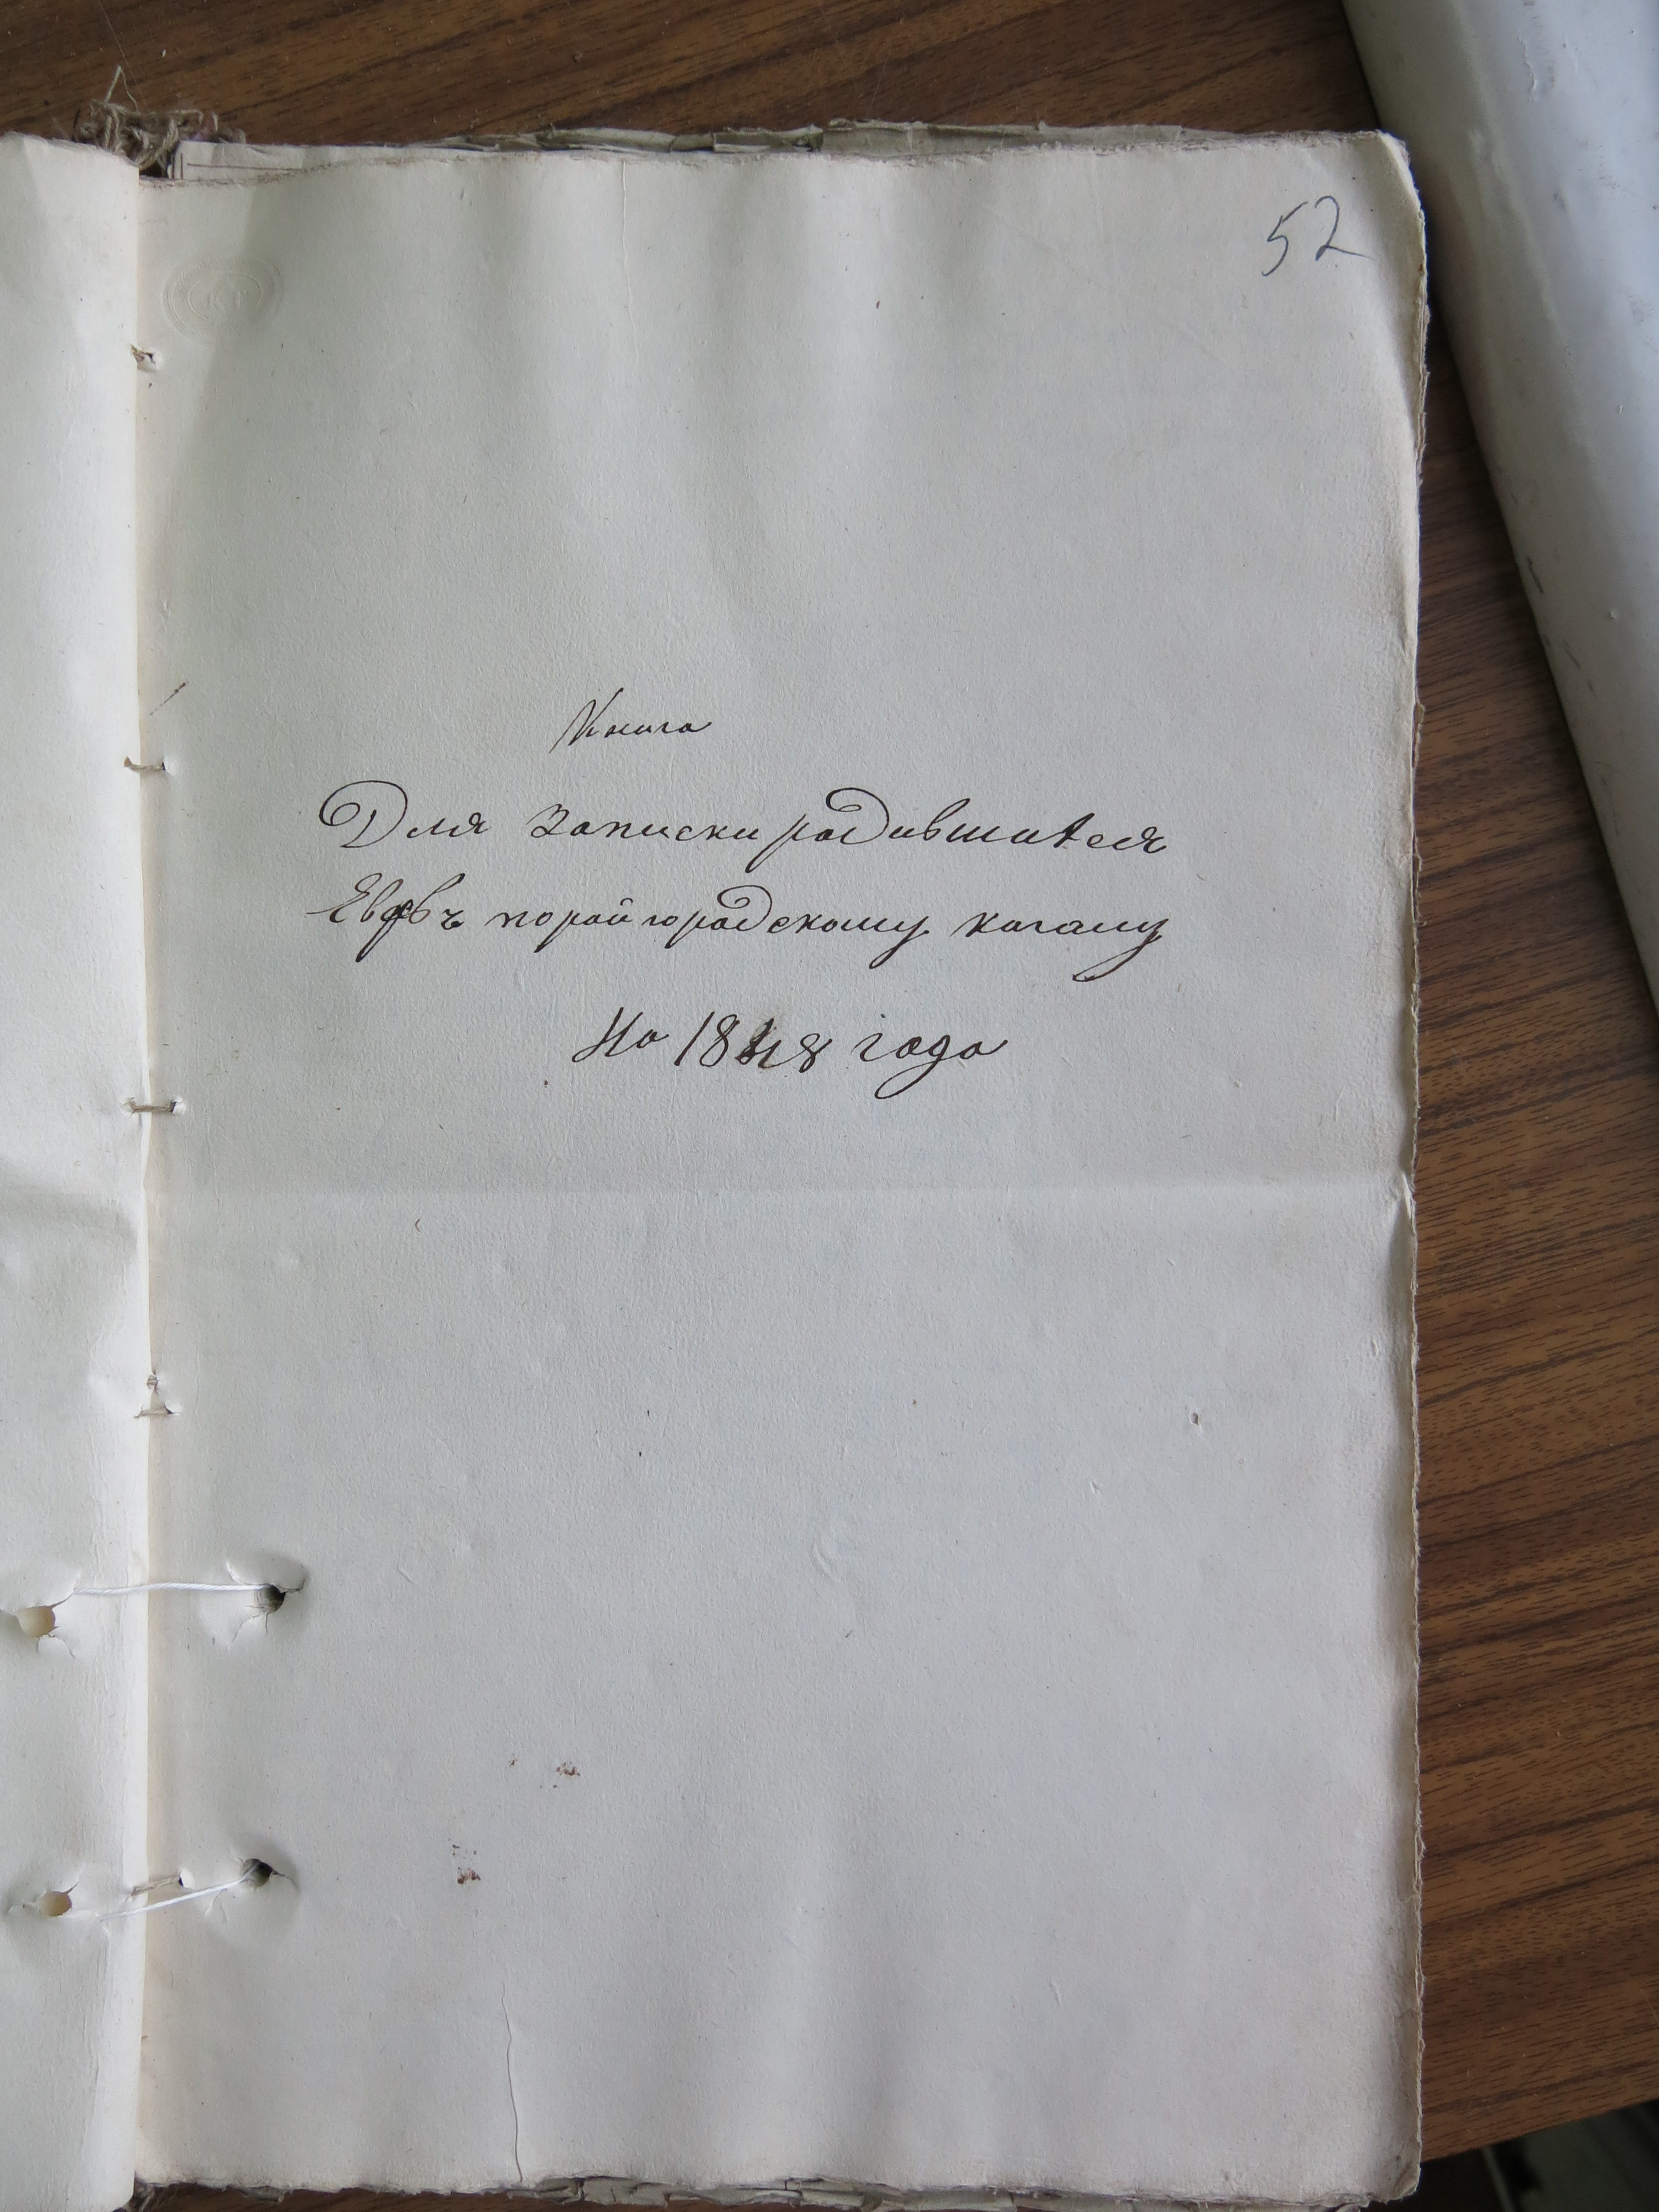 52
Книга
Для записки родившихся
Еврѣвъ порайгородскому кагалу
На 1848 года